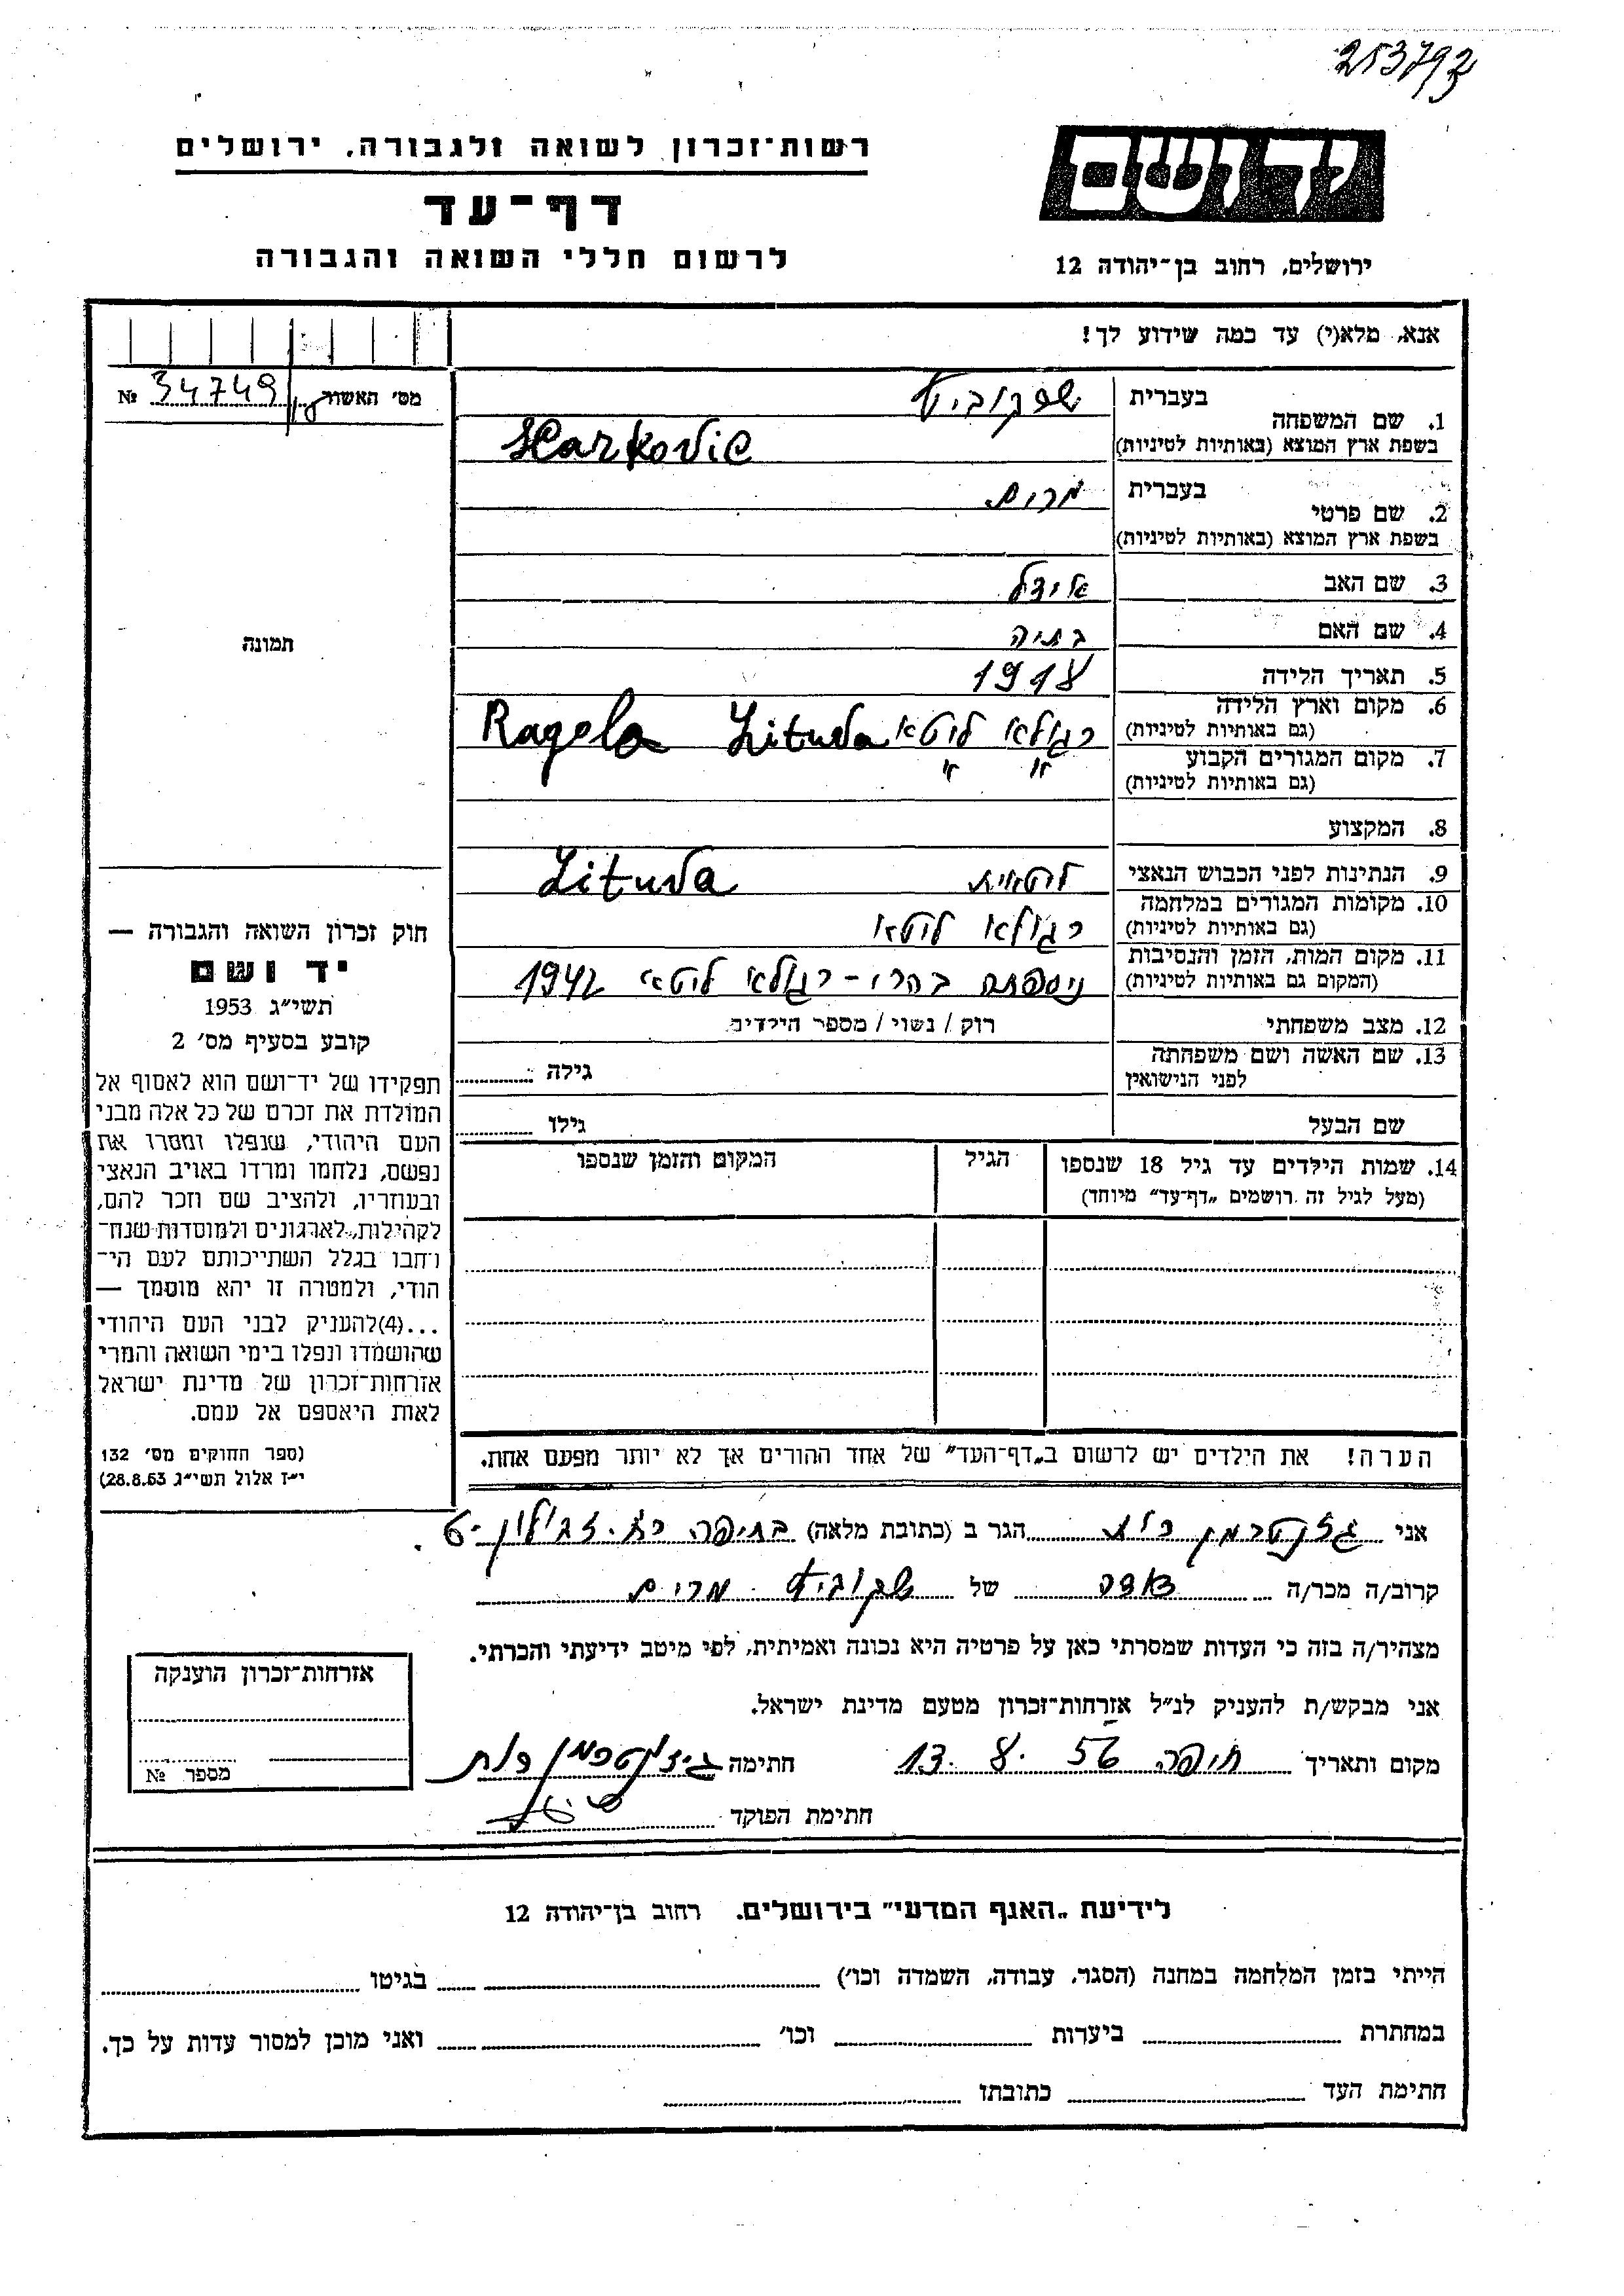 253793
רשות־זכרון לשואה ולגבורה, ירושלים
דף־עד
לרשום חללי השואה והגבורה
יד ושם
ירושלים, רחוב בן־יהודה 12
אנא, מלא(י) עד כמה שידוע לך!
מס׳ האשור № 34749
1. שם המשפחה בעברית
בשפת ארץ המוצא (באותיות לטיניות) Škarkovic
2. שם פרטי בעברית מרים
בשפת ארץ המוצא (באותיות לטיניות)
3. שם האב אידל
4. שם האם בתיה
5. תאריך הלידה 1918
6. מקום וארץ הלידה (גם באותיות לטיניות) רגולא ליטא Lituva Ragola
7. מקום המגורים הקבוע (גם באותיות לטיניות) " "
8. המקצוע
9. הנתינות לפני הכבוש הנאצי ליטאית Lituva
10. מקומות המגורים במלחמה (גם באותיות לטיניות) רגולא ליטא
11. מקום המות, הזמן והנסיבות (המקום גם באותיות לטיניות) ניספתה רגולא ליטא 1942
12. מצב משפחתי רוק / נשוי / מספר הילדים
13. שם האשה ושם משפחתה לפני הנישואין גילה
שם הבעל גילו
14. שמות הילדים עד גיל 18 שנספו הגיל המקום והזמן שנספו
(מעל לגיל זה רושמים „דף־עד״ מיוחד)
הערה! את הילדים יש לרשום ב„דף־העד״ של אחד ההורים אך לא יותר מפעם אחת.
תמונה
חוק זכרון השואה והגבורה —
יד ושם
תשי״ג 1953
קובע בסעיף מס׳ 2
תפקידו של יד־ושם הוא לאסוף אל
המולדת את זכרם של כל אלה מבני
העם היהודי, שנפלו ומסרו את
נפשם, נלחמו ומרדו באויב הנאצי
ובעוזריו, ולהציב שם וזכר להם,
לקהילות, לארגונים ולמוסדות שנח־
רחבו בגלל השתייכותם לעם הי־
הודי, ולמטרה זו יהא מוסמך —
...(4) להעניק לבני העם היהודי
שהושמדו ונפלו בימי השואה והמרי
אזרחות־זכרון של מדינת ישראל
לאות היאספם אל עמם.
(ספר החוקים מס׳ 132
י״ז אלול תשי״ג 28.8.53)
אני רות הגר ב (כתובת מלאה) בחיפה רח. זבולון 6
קרוב/ה מכר/ה של מרים
מצהיר/ה בזה כי העדות שמסרתי כאן על פרטיה היא נכונה ואמיתית, לפי מיטב ידיעתי והכרתי.
אני מבקש/ת להעניק לנ״ל אזרחות־זכרון מטעם מדינת ישראל.
מקום ותאריך חיפה 13. 8. 56 חתימה רות
חתימת הפוקד
אזרחות־זכרון הוענקה
מספר №
לידיעת „האגף המדעי״ בירושלים. רחוב בן־יהודה 12
הייתי בזמן המלחמה במחנה (הסגר, עבודה, השמדה וכו׳) בגיטו
במחתרת ביערות וכו׳ ואני מוכן למסור עדות על כך.
חתימת העד כתובתו